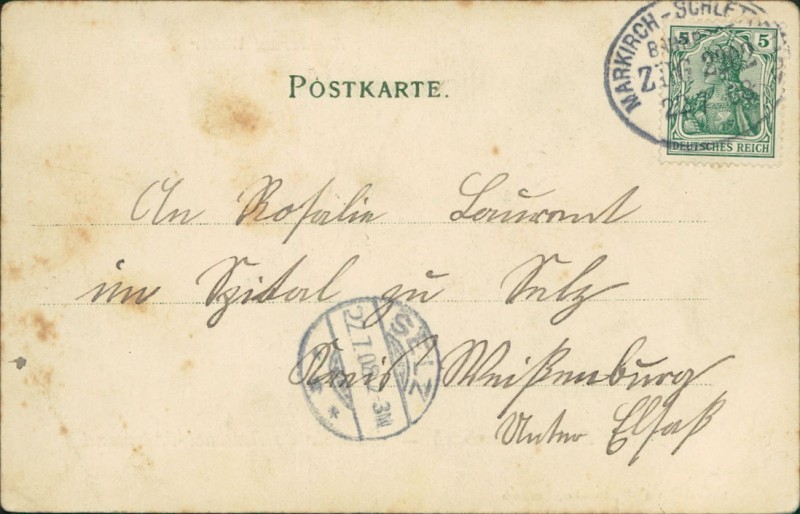 MARKIRCH - SCHLETT
ZUG
5 5
DEUTSCHES REICH
POSTKARTE.
An Rosalie Laurent
im Spital zu Selz
SELZ
27.7.08. 2-3N
Kreis Weißenburg
Unter Elsaß